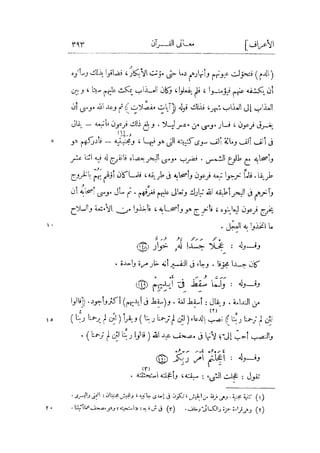 الأعراف] معـانى القـرآن ٣٩٣
(الدم) فتحوّلت عيونهم وأنهارهم دما حتى موّتت الأبكار، فضاقوا بذلك وسألوه
أن يكشفه عنهم فيؤمنوا، فلم يفعلوا، وكان العذاب يمكث عليهم سبتا، وبين
العذاب إلى العذاب شهر، فذلك قوله (آيات مفصّلات) ثم وعد الله موسى أن
يغرق فرعون، فسار موسى من مصر ليلا. وبلغ ذلك فرعون فأتبعه – يقال
فى ألف ألف ومائة ألف سوى كتيبته التى هو فيها، ومجنّبتيه (١) – فأدركهم هو ٥
وأصحابه مع طلوع الشمس. فضرب موسى البحر بعصاه فانفرج له فيه اثنا عشر
طريقا. فلمّا خرجوا تبعه فرعون وأصحابه فى طريقه، فلما كان أوّلهم يهمّ بالخروج
وآخرهم فى البحر أطبقه الله تبارك وتعالى عليهم فغرّقهم. ثم سأل موسى أصحابه أن
يخرج فرعون ليعاينوه، فأخرج هو وأصحابه، فأخذوا من الأمتعة والسلاح
ما اتخذوا به العجل. ١٠
وقـوله : عِجْلًا جَسَدًا لَّهُۥ خُوَارٌ (١٤٨)
كان جسدا مجوّفا. وجاء فى التفسير أنه خار مرة واحدة.
وقـوله : وَلَمَّا سُقِطَ فِىٓ أَيْدِيهِمْ (١٤٩)
من الندامة. ويقال : أسقط لغة. و(سقط فى أيديهم) أكثر وأجود. (قالوا
لئن لم ترحمنا ربّنا) نصب (٢) بالدعاء (لئن لم ترحمنا ربنا) ويقرأ (لئن لم يرحمنا ربنا) ١٥
والنصب أحبّ إلىّ؛ لأنها فى مصحف عبد الله (قالوا ربنا لئن لم ترحمنا).
وقـوله : أَعَجِلْتُمْ أَمْرَ رَبِّكُمْ (١٥٠)
تقول : عجلت الشىء : سبقته، وأعجلته استحثثته (٣).
(١) تثنية مجنبة. وهى فرقة من الجيش، تكون فى إحدى جانبيه، وللجيش مجنبتان: اليمنى واليسرى.
(٢) وهى قراءة حمزة والكسائى وخلف. ٢٠